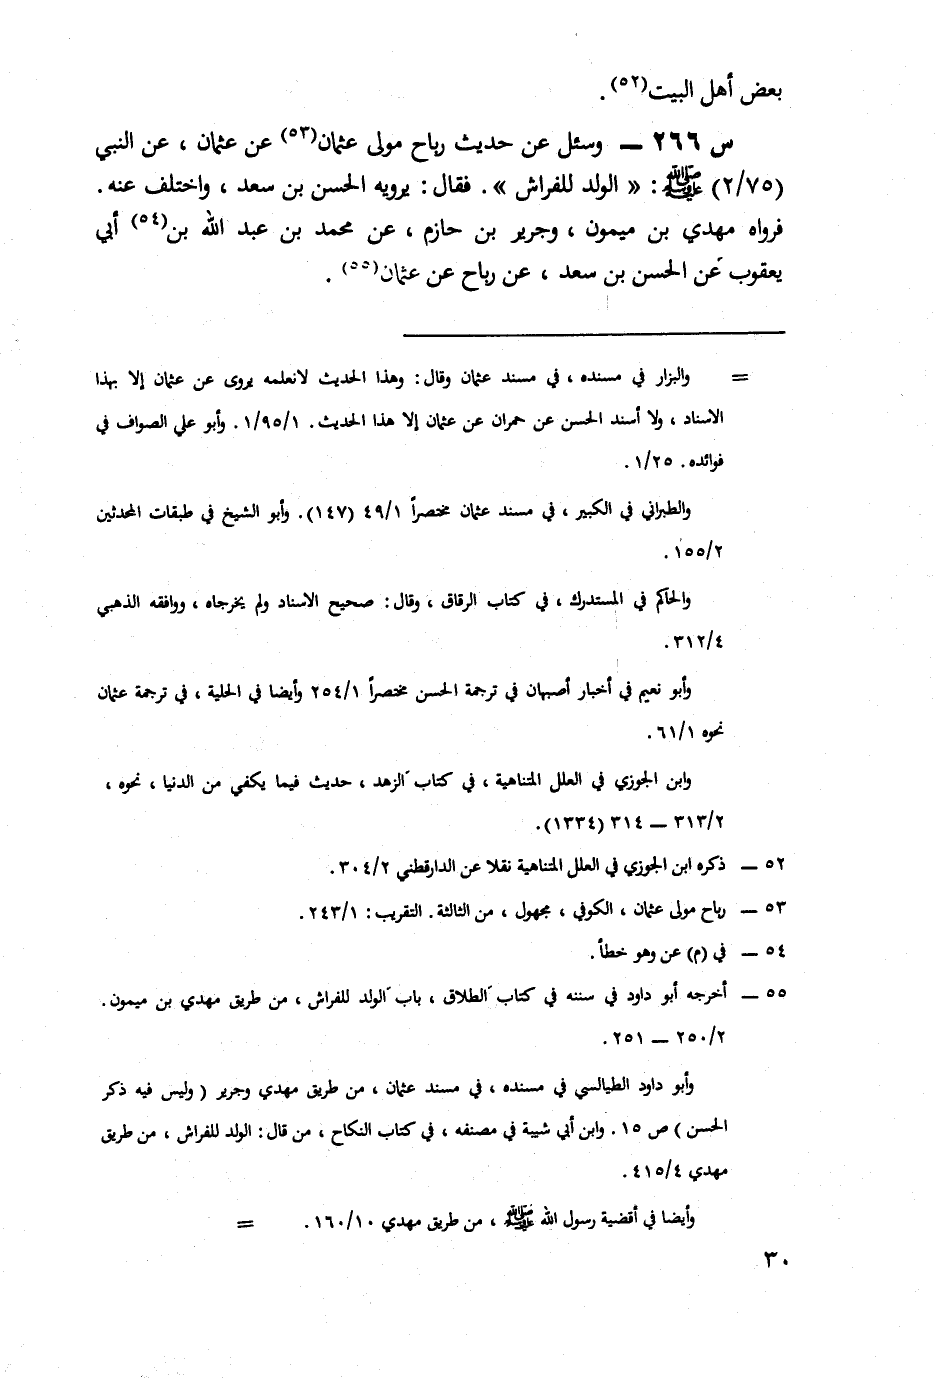 بعض أهل البيت(٥٢) .
س ٢٦٦ — وسئل عن حديث رباح مولى عثمان(٥٣) عن عثمان ، عن النبي
(٢/٧٥) ﷺ : « الولد للفراش » . فقال : يرويه الحسن بن سعد ، واختلف عنه .
فرواه مهدي بن ميمون ، وجرير بن حازم ، عن محمد بن عبد الله بن(٥٤) أبي
يعقوب عن الحسن بن سعد ، عن رباح عن عثمان(٥٥) .
= والبزار في مسنده ، في مسند عثمان وقال : وهذا الحديث لانعلمه يروى عن عثمان إلا بهذا
الاسناد ، ولا أسند الحسن عن حمران عن عثمان إلا هذا الحديث . ١/٩٥/١ . وأبو علي الصواف في
فوائده . ١/٢٥ .
والطبراني في الكبير ، في مسند عثمان مختصراً ٤٩/١ (١٤٧) . وأبو الشيخ في طبقات المحدثين
١٥٥/٢ .
والحاكم في المستدرك ، في كتاب الرقاق ، وقال : صحيح الاسناد ولم يخرجاه ، ووافقه الذهبي
٣١٢/٤ .
وأبو نعيم في أخبار أصبهان في ترجمة الحسن مختصراً ٢٥٤/١ وأيضا في الحلية ، في ترجمة عثمان
نحوه ٦١/١ .
وابن الجوزي في العلل المتناهية ، في كتاب الزهد ، حديث فيما يكفي من الدنيا ، نحوه ،
٣١٣/٢ — ٣١٤ (١٣٣٤) .
٥٢ — ذكره ابن الجوزي في العلل المتناهية نقلا عن الدارقطني ٣٠٤/٢ .
٥٣ — رباح مولى عثمان ، الكوفي ، مجهول ، من الثالثة . التقريب : ٢٤٣/١ .
٥٤ — في (م) عن وهو خطأ .
٥٥ — أخرجه أبو داود في سننه في كتاب الطلاق ، باب الولد للفراش ، من طريق مهدي بن ميمون .
٢٥٠/٢ — ٢٥١ .
وأبو داود الطيالسي في مسنده ، في مسند عثمان ، من طريق مهدي وجرير ( وليس فيه ذكر
الحسن ) ص ١٥ . وابن أبي شيبة في مصنفه ، في كتاب النكاح ، من قال : الولد للفراش ، من طريق
مهدي ٤١٥/٤ .
وأيضا في أقضية رسول الله ﷺ ، من طريق مهدي ١٦٠/١٠ . =
٣٠